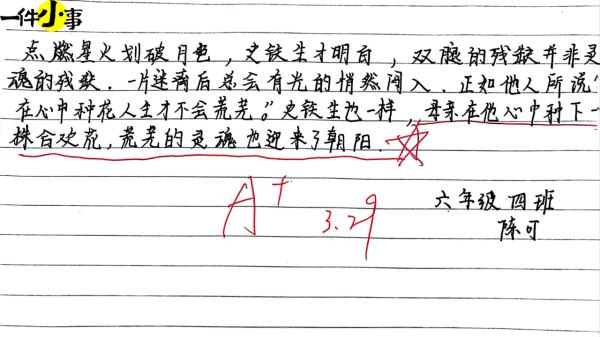 一件小事
点燃星火划破月色,史铁生才明白,双腿的残缺并非灵
魂的残缺。一片迷离后总会有光的悄然闯入。正如他人所说:
在心中种花人生才不会荒芜。”史铁生也一样,母亲在他心中种下一
株合欢花,荒芜的灵魂也迎来了朝阳。
A+
3.29
六年级四班
陈可